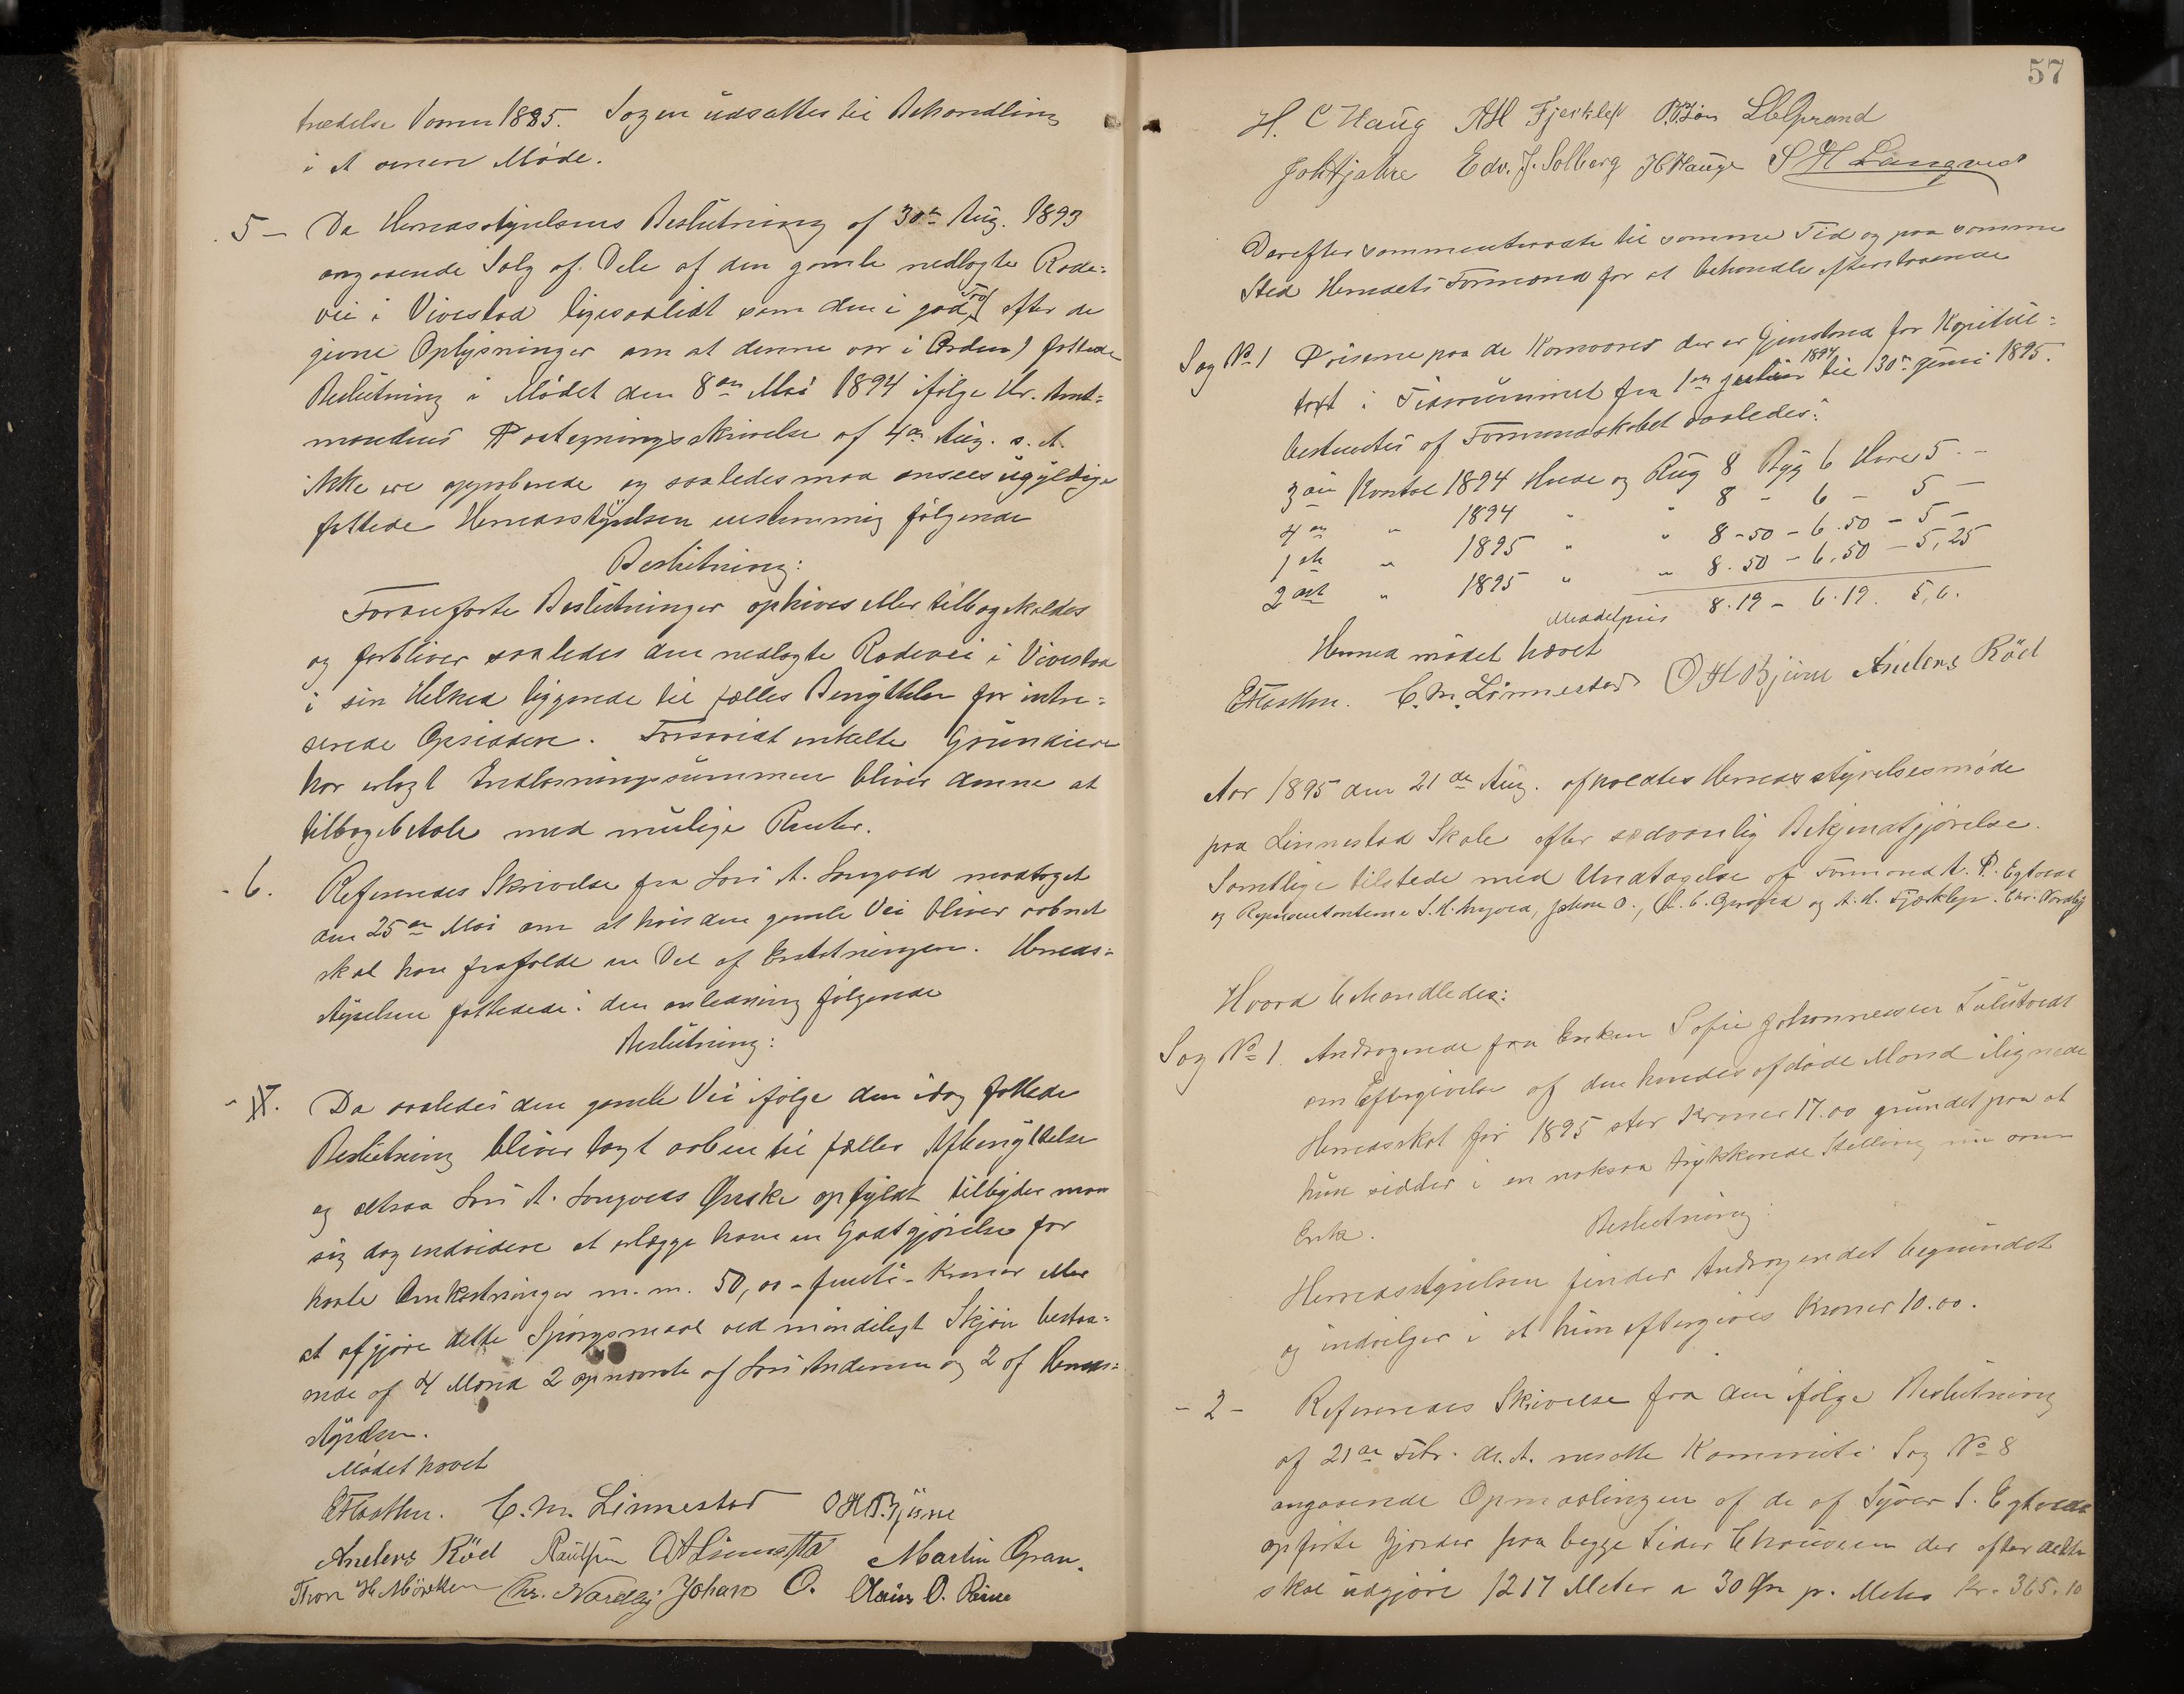 trædelse Vaaren 1885. Sagen udsattes til Behandling
i et annen Møde.
5 — Da Herredsstyrelsens Beslutning af 30te Aug. 1893
angaaende Salg af Dele af den gamle nedlagte Rode-
vei i Vivestad ligesaalidt som den i god Tro (efter de
givne Oplysninger om at denne var i Orden) fattede
Beslutning i Mødet den 8de Mai 1894 ifølge Hr. Amt-
mandens Paategningsskrivelse af 4de Aug. s. A.
ikke ere approberede og saaledes maa ansees ugyldige
fattede Herredsstyrelsen eenstemmig følgende
Beslutning:
Foranførte Beslutninger ophæves eller tilbagekaldes
og forbliver saaledes den nedlagte Rodevei i Vivestad
i sin Helhed liggende til fælles Benyttelse for intre-
serede Opsiddere. Forsaavidt enkelte Grundeiere
har erlagt Indløsningssummen bliver denne at
tilbagebetale med mulige Renter.
- 6. Refereredes Skrivelse fra Lars A. Langved modtaget
den 25de Mai om at hvis den gamle Vei bliver aabnet
skal han frafalde en Del af Erstatningen. Herreds-
styrelsen fattede i den anledning følgende
Beslutning:
Da saaledes den gamle Vei ifølge den idag fattede
Beslutning bliver lagt aaben til fælles Afbenyttelse
og altsaa Lars A. Langveds Ønske opfyldt tilbyder man
sig dog endvidere at erlægge ham en Godtgjørelse for
havte Omkostninger m. m. 50,00 - femti - Kroner eller
at afgjøre dette Spørgsmaal ved mindeligt Skjøn bestaa-
ende af 4 Mænd 2 opnævnte af Lars Andersen og 2 af Herreds-
styrelsen.
Mødet hævet
C. M. Linnestad O H Bjune
Anders Röd Martin Gran
Thor H Mörken Chr. Nordby Johan O.
57
H. C Haug A H Fjerkleff
Edv. J. Solberg H Hauge S H Langved
Derefter sammentraadte til samme Tid og paa samme
Sted Herredets Formænd for at behandle efterstaaende
Sag No 1 Priserne paa de Kornvarer der er Gjenstand for Kapitel-
taxt i Tidsrummet fra 1ste 1894 til 30te Juni 1895.
bestemtes af Formandskabet saaledes:
3die Kvartal 1894 Hvede og Rug 8 Byg 6 Havre 5 -
4de " 1894 " " 8 - 6 - 5 -
1ste " 1895 " " 8-50 - 6.50 - 5 -
2det " 1895 " " 8.50 - 6.50 - 5,25
Middelpris 8.19 - 6.19. 5,6.
Hermed mødet hævet
C. M. Linnestad O H Bjune Anders Röd
Aar 1895 den 21de Aug. afholdtes Herredsstyrelsesmøde
paa Linnestad Skole efter sædvanlig Bekjendtgjørelse.
Samtlige tilstede med Undtagelse af Formand A. P. Egtved
og Repræsentanterne S. H. Langved, Johan O., L. C. Gprand og A. H. Fjærkleff. Chr. Nordby
Hvord behandledes:
Sag No 1. Andragende fra Enken Sofie Johannessen
om Eftergivelse af den hendes afdøde Mand ilignede
Herredsskat for 1895 stor Kroner 17.00 grundet paa at
hun sidder i en noksaa trykkende Stilling nu som
Enke. Beslutning:
Herredsstyrelsen finder Andragendet begrundet
og indvilger i at hun eftergives Kroner 10.00.
- 2 - Refereredes Skrivelse fra den ifølge Beslutning
af 21de Febr. ds. A. nedsatte Kommite i Sag No 8
angaaende Opmaalingen af de af Syver S. Egtvedt
opførte Gjærder paa begge Sider Chauseen der efter dette
skal udgjøre 1217 Meter a 30 Øre p. Meter Kr. 365.10